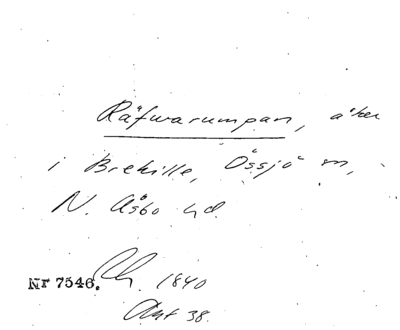 Räfwarumpan, åker
i Brekille, Össjö sn,
N. Åsbo hd.
Nr 7546. Lh. 1840
Akt 38.